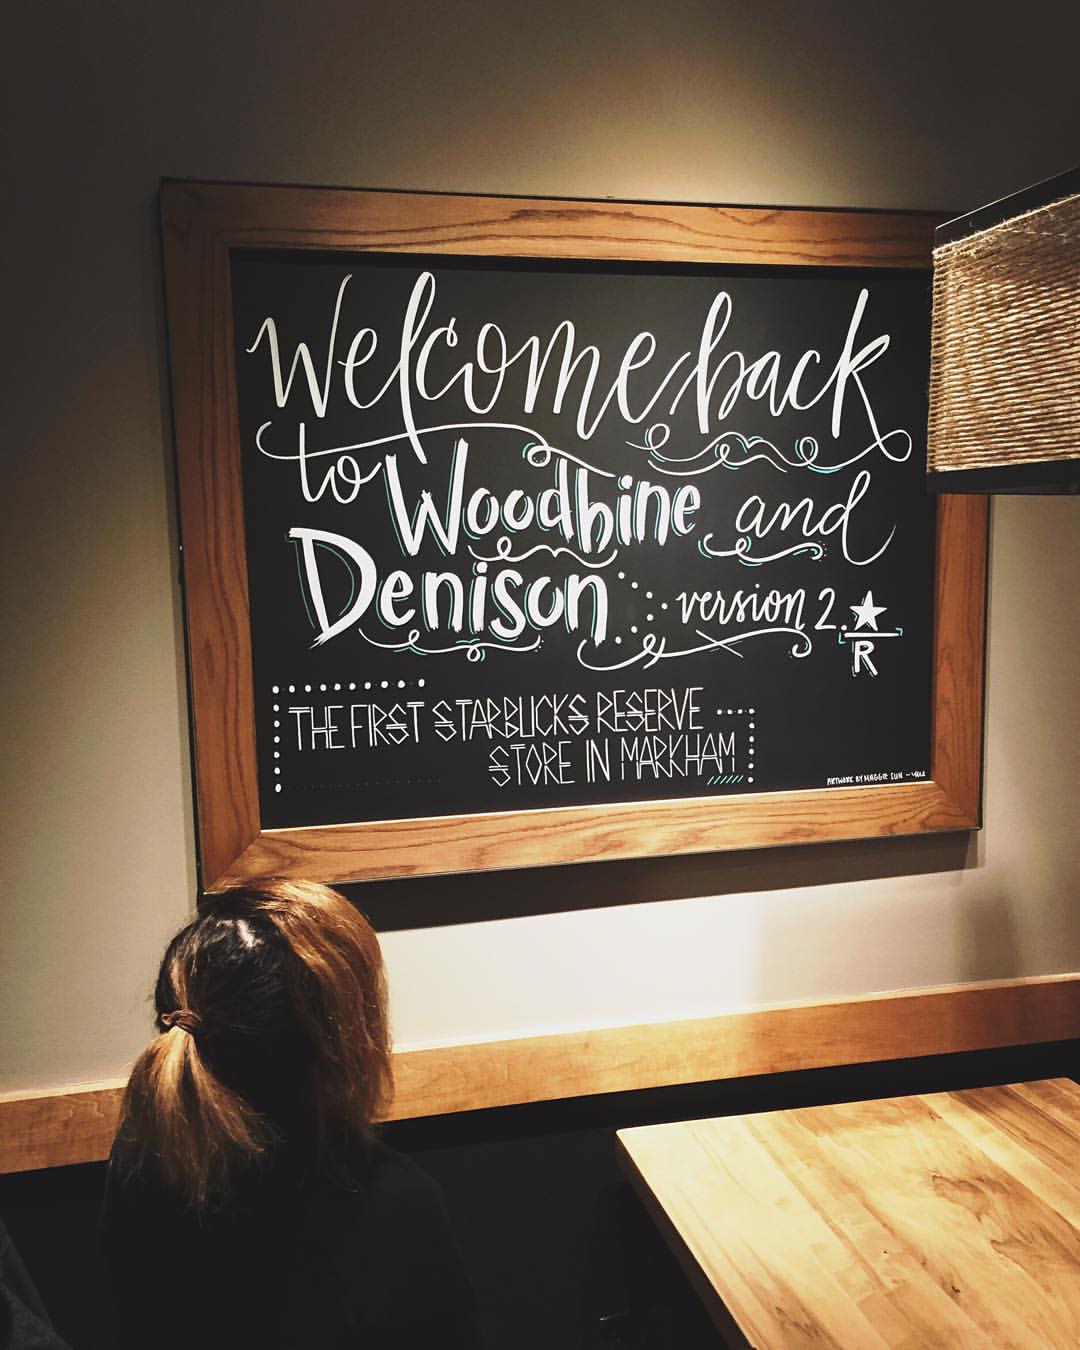 Welcome back
to Woodbine and
Denison version 2.★
R
THE FIRST STARBUCKS RESERVE
STORE IN MARKHAM
ARTWORK BY MAGGIE SUN -